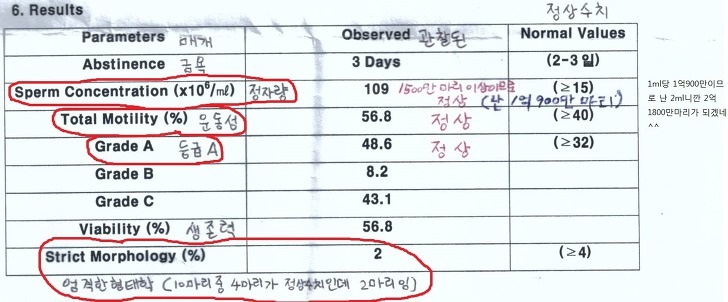 6. Results
정상수치
Parameters 매개 Observed 관찰된 Normal Values
Abstinence 금욕 3 Days (2-3일)
Sperm Concentration (x10⁶/㎖) 정자량 109 1500만 마리 이상이므로 정상 (난 1억 900만 마리) (≥15)
Total Motility (%) 운동성 56.8 정상 (≥40)
Grade A 등급A 48.6 정상 (≥32)
Grade B 8.2
Grade C 43.1
Viability (%) 생존력 56.8
Strict Morphology (%) 2 (≥4)
엄격한형태학 (10마리중 4마리가 정상수치인데 2마리임)
1ml당 1억900만이므
로 난 2ml니깐 2억
1800만마리가 되겠네
^^